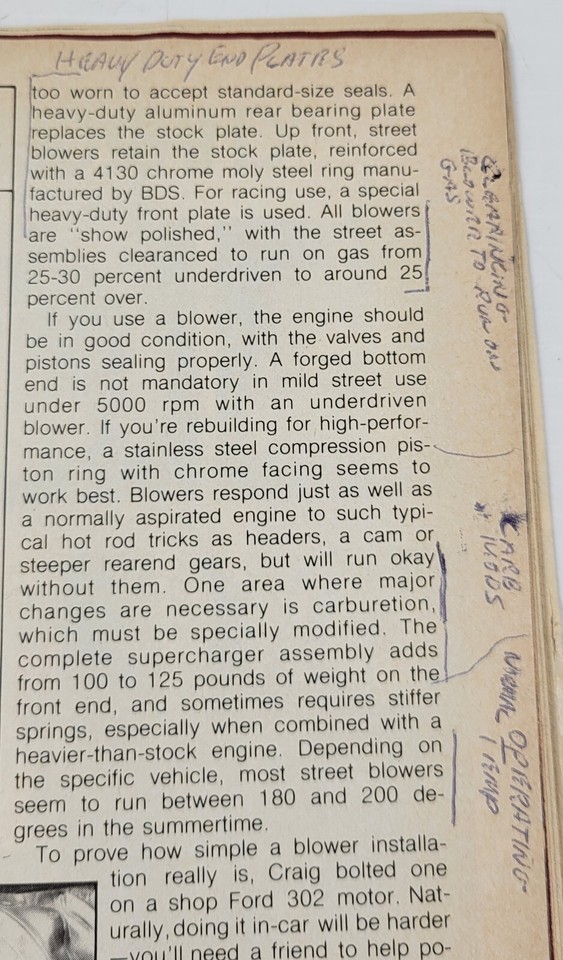 HEAVY DUTY END PLATES
too worn to accept standard-size seals. A
heavy-duty aluminum rear bearing plate
replaces the stock plate. Up front, street
blowers retain the stock plate, reinforced
with a 4130 chrome moly steel ring manu-
factured by BDS. For racing use, a special
heavy-duty front plate is used. All blowers
are "show polished," with the street as-
semblies clearanced to run on gas from
25-30 percent underdriven to around 25
percent over.
If you use a blower, the engine should
be in good condition, with the valves and
pistons sealing properly. A forged bottom
end is not mandatory in mild street use
under 5000 rpm with an underdriven
blower. If you're rebuilding for high-perfor-
mance, a stainless steel compression pis-
ton ring with chrome facing seems to
work best. Blowers respond just as well as
a normally aspirated engine to such typi-
cal hot rod tricks as headers, a cam or
steeper rearend gears, but will run okay
without them. One area where major
changes are necessary is carburetion,
which must be specially modified. The
complete supercharger assembly adds
from 100 to 125 pounds of weight on the
front end, and sometimes requires stiffer
springs, especially when combined with a
heavier-than-stock engine. Depending on
the specific vehicle, most street blowers
seem to run between 180 and 200 de-
grees in the summertime.
To prove how simple a blower installa-
tion really is, Craig bolted one
on a shop Ford 302 motor. Nat-
urally, doing it in-car will be harder
—you'll need a friend to help po-
BLOWER TO RUN ON
GAS
CARB
* MODS
OPERATING
TEMP